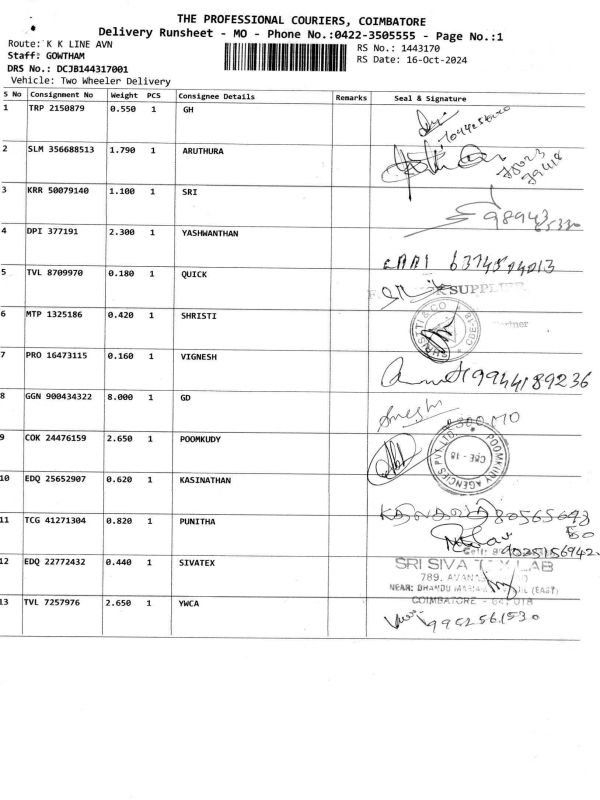 THE PROFESSIONAL COURIERS, COIMBATORE
Delivery Runsheet - MO - Phone No.:0422-3505555 - Page No.:1
Route: K K LINE AVN RS No.: 1443170
Staff: GOWTHAM RS Date: 16-Oct-2024
DRS No.: DCJB144317001
Vehicle: Two Wheeler Delivery
S No Consignment No Weight PCS Consignee Details Remarks Seal & Signature
1 TRP 2150879 0.550 1 GH
2 SLM 356688513 1.790 1 ARUTHURA
3 KRR 50079140 1.100 1 SRI
98943
4 DPI 377191 2.300 1 YASHWANTHAN
5 TVL 8709970 0.180 1 QUICK
SUPPLIER
6 MTP 1325186 0.420 1 SHRISTI
SHRISTI & CO
Partner
7 PRO 16473115 0.160 1 VIGNESH
9944189236
8 GGN 900434322 8.000 1 GD
9 COK 24476159 2.650 1 POOMKUDY
POOMKUDY AGENCIES PVT LTD
CBE - 18
10 EDQ 25652907 0.620 1 KASINATHAN
11 TCG 41271304 0.820 1 PUNITHA
9025156942
12 EDQ 22772432 0.440 1 SIVATEX
SRI SIVA LAB
789,
NEAR: (EAST)
COIMBATORE - 641 018
13 TVL 7257976 2.650 1 YWCA